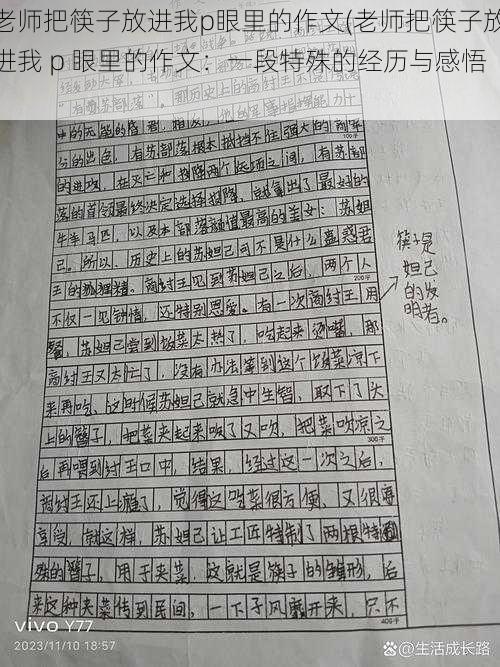 老师把筷子放进我p眼里的作文(老师把筷子放
进我 p 眼里的作文：一段特殊的经历与感悟
"有苏部落"。那历史上的
中的无能的昏君，相反，他的军事指挥能力十
100字
分的出色，有苏部落根本抵挡不住强大的商军
的进攻，在灭亡和投降两个选项之间，有苏部
落的首领最终决定选择投降，就拿出了最好的
牛羊马匹，以及本部落颜值最高的美女：苏妲
己。所以，历史上的苏妲己可不是什么蛊惑君
王的狐狸精。商纣王见到苏妲己之后，两个人
200字
不仅一见钟情，还特别恩爱。有一次商纣王用
餐，苏妲己尝到饭菜太热了，吃起来烫嘴，那
商纣王又太忙了，没有办法等到这个饭菜凉下
来再吃，这时候苏妲己就急中生智，取下了头
上的簪子，把菜夹起来吹了又吹，把菜吹凉之
300字
后再喂到纣王口中，结果，经过这一次之后，
商纣王还上瘾了，觉得这吃菜很方便，又很享
享受，就这样，苏妲己让工匠特制了两根特
殊的簪子，用于夹菜，这就是筷子的雏形，后
来这种夹菜传到民间，一下子风靡开来，只不
400字
筷子是
妲己
的发
明者。
vivo Y77
2023/11/10 18:57
@生活成长路